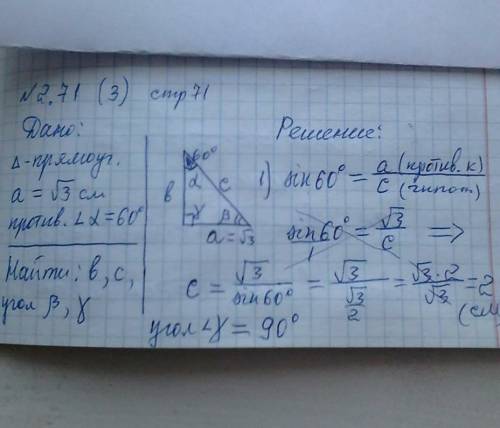 №2.71 (3) стр 71
Дано:
Δ-прямоуг.
a = √3 см
против. ∠α = 60°
Найти: в, с,
угол β, γ
60°
α
в
с
γ
β
a = √3
Решение:
1) sin60° = a (против. к) / c (гипот)
sin60° = √3 / c ⟹
1
c = √3 / sin60° = √3 / (√3 / 2) = √3 · 2 / √3 = 2
(см
угол ∠γ = 90°